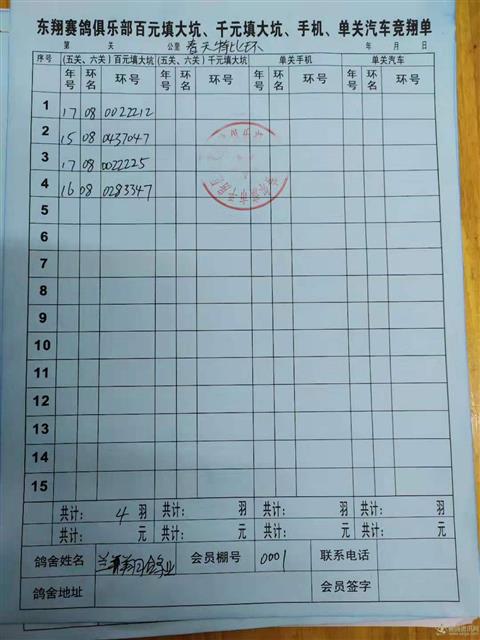 东翔赛鸽俱乐部百元填大坑、千元填大坑、手机、单关汽车竞翔单
第 关 公里 春天特比环 年 月 日
序号 (五关、六关)百元填大坑 (五关、六关)千元填大坑 单关手机 单关汽车
年号 环名 环号 年号 环名 环号 年号 环名 环号 年号 环名 环号
1 17 08 0022212
2 15 08 0437047
3 17 08 0022225
4 16 08 0283347
5
6
7
8
9
10
11
12
13
14
15
共计: 4 羽 共计: 羽 共计: 羽 共计: 羽
共计: 元 共计: 元 共计: 元 共计: 元
鸽舍姓名 翔鸽业 会员棚号 0001 联系电话
鸽舍地址 会员签字